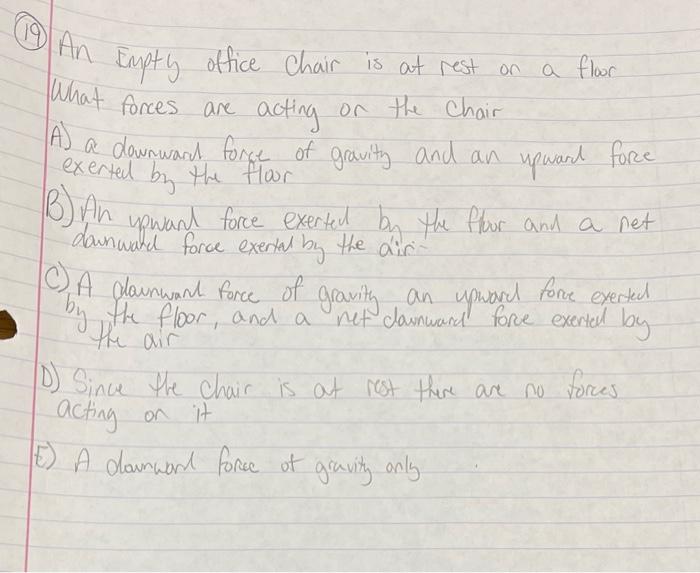 19 An Empty office Chair is at rest on a floor
What forces are acting on the Chair
A) a downward force of gravity and an upward force
exerted by the floor
B) An upward force exerted by the floor and a net
downward force exerted by the air
C) A downward force of gravity an upward force exerted
by the floor, and a net downward force exerted by
the air
D) Since the chair is at rest there are no forces
acting on it
E) A downward force of gravity only